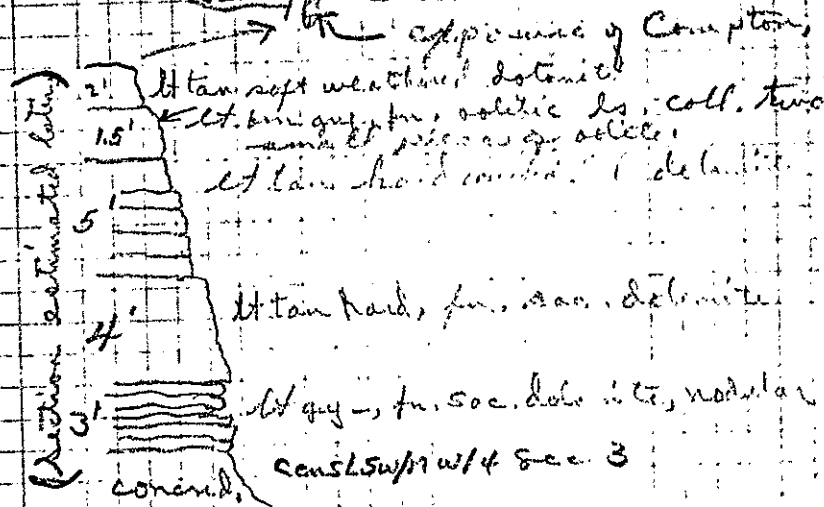 of Compton,
(Section estimated later)
2' lt tan soft weathered dolomite
1.5' lt. brn gry, fn, oolitic ls, coll. two
small pieces of oolite.
5' lt tan hard
4' lt tan hard, fn. sac. dolomite
3' lt gry-, fn. sac. dolo ite, nodular
SW/NW/4 Sec 3
covered.